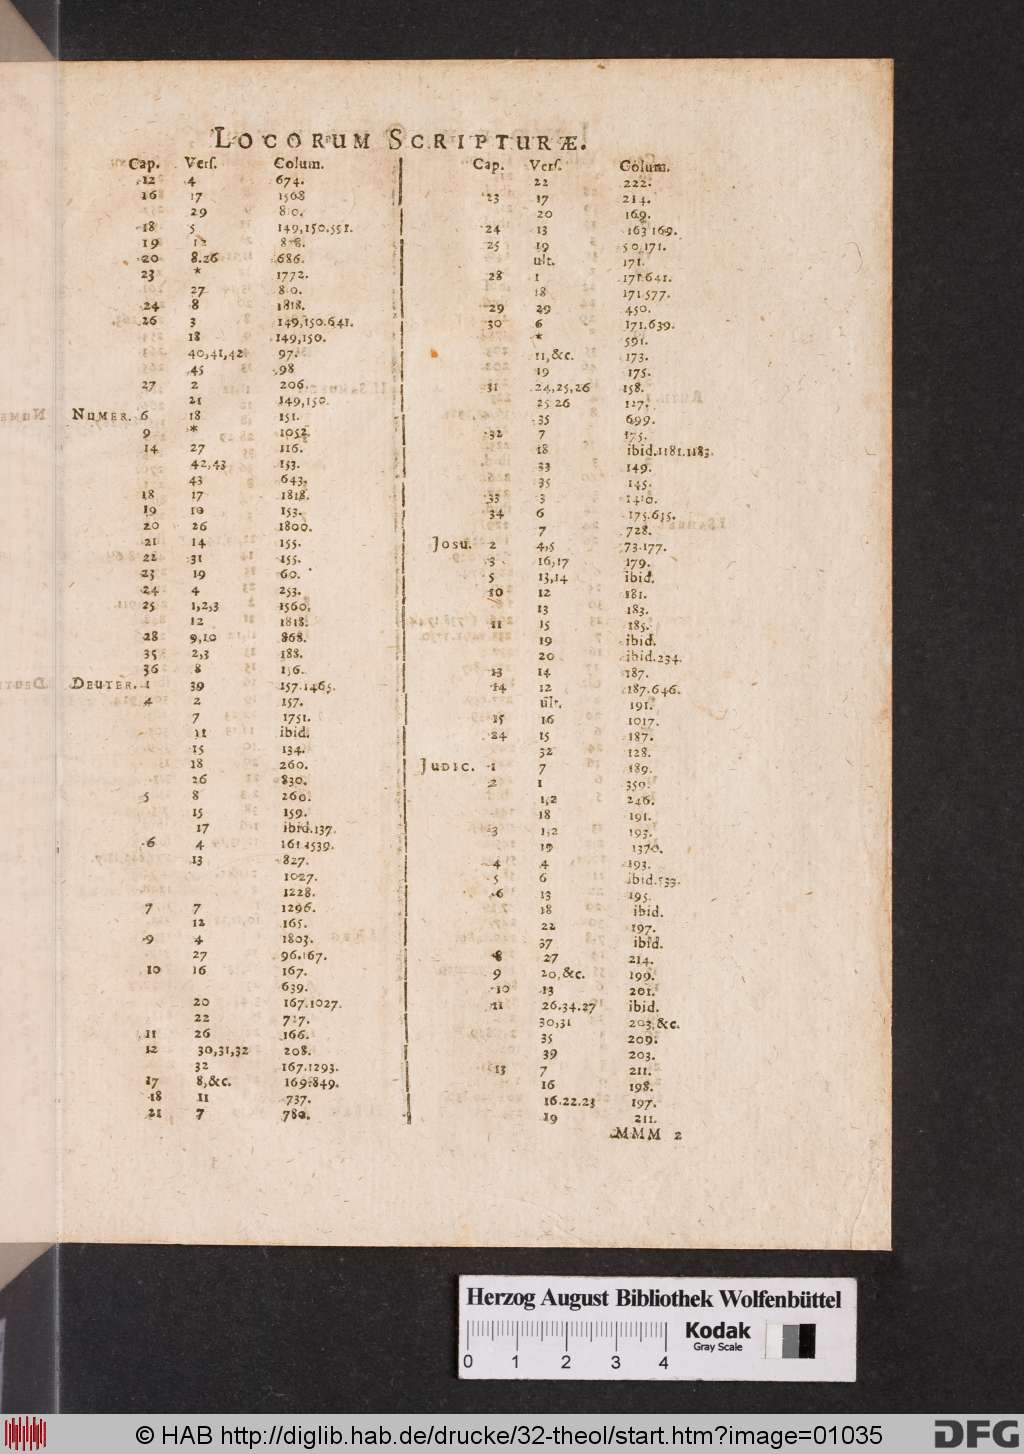 LOCORUM SCRIPTURÆ.
Cap. Vers. Colum.
12 4 674.
16 17 1568
29 80.
18 5 149,150,551.
19 12
20 8.26 686.
23 * 1772.
27 80.
24 8 1818.
26 3 149,150.641.
18 149,150.
40,41,42 97.
45 98
27 2 206.
21 149,150.
NUMER. 6 18 151.
9 * 1052.
14 27 116.
42,43 153.
43 643.
18 17 1818.
19 10 153.
20 26 1800.
21 14 155.
22 31 155.
23 19 60.
24 4 253.
25 1,2,3 1560.
12 1818.
28 9,10 868.
35 2,3 188.
36 8 156.
DEUTER. 1 39 157.1465.
4 2 157.
7 1751.
11 ibid.
15 134.
18 260.
26 830.
5 8 260.
15 159.
17 ibid.137.
6 4 161.1539.
13 827.
1027.
1228.
7 7 1296.
12 165.
9 4 1803.
27 96.167.
10 16 167.
639.
20 167.1027.
22 727.
11 26 166.
12 30,31,32 208.
32 167.1293.
17 8,&c. 169.849.
18 11 737.
21 7 780.
Cap. Vers. Colum.
22 222.
23 17 214.
20 169.
24 13 163 169.
25 19 50,171.
ult. 171.
28 1 171.641.
18 171.577.
29 29 450.
30 6 171.639.
* 591.
11,&c. 173.
19 175.
31 24,25,26 158.
25.26 127.
35 699.
32 7 175.
18 ibid.1181.1183.
33 149.
35 145.
33 3 1410.
34 6 175.635.
7 728.
Josu. 2 4,5 73.177.
3 16,17 179.
5 13,14 ibid.
10 12 181.
13 183.
11 15 185.
19 ibid.
20 ibid.234.
13 14 187.
14 12 187.646.
ult. 191.
15 16 1017.
24 15 187.
32 128.
JUDIC. 1 7 189.
2 1 350.
1,2 246.
18 191.
3 1,2 193.
19 1370.
4 4 193.
5 6 ibid.533.
6 13 195.
18 ibid.
22 197.
37 ibid.
8 27 214.
9 20,&c. 199.
10 13 201.
11 26.34.27 ibid.
30,31 203,&c.
35 209.
39 203.
13 7 211.
16 198.
16.22.23 197.
19 211.
MMM 2
Herzog August Bibliothek Wolfenbüttel
0 1 2 3 4
Kodak
Gray Scale
© HAB http://diglib.hab.de/drucke/32-theol/start.htm?image=01035
DFG